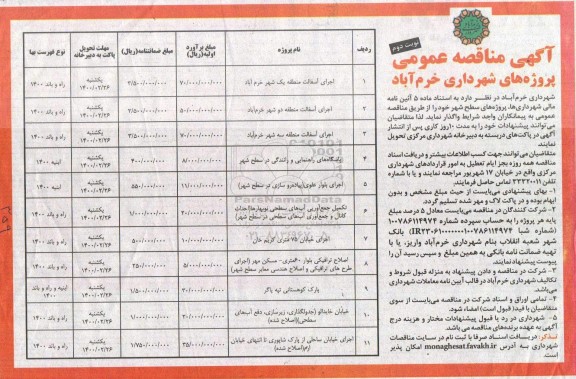 نوبت دوم
آگهی مناقصه عمومی
پروژه‌های شهرداری خرم‌آباد
شهرداری خرم‌آباد در نظر دارد به استناد ماده ۵ آئین نامه
مالی شهرداری‌ها، پروژه‌های سطح شهر خود را از طریق مناقصه
عمومی به پیمانکاران واجد شرایط واگذار نماید. لذا متقاضیان
می‌توانند پیشنهادات خود را به مدت ۱۰ روز کاری پس از انتشار
آگهی در پاکت‌های دربسته به دبیرخانه شهرداری مرکزی تحویل
نمایند.
متقاضیان می‌توانند جهت کسب اطلاعات بیشتر و دریافت اسناد
مناقصه همه روزه بجز ایام تعطیل به امور قراردادهای شهرداری
مرکزی واقع در خیابان ۱۷ شهریور مراجعه نمایند و یا با شماره
تلفن ۳۳۳۲۰۰۱۱ تماس حاصل فرمایند.
۱- بهای پیشنهادی می‌بایست از حیث مبلغ مشخص و بدون
ابهام بوده و در پاکت لاک و مهر شده تسلیم گردد.
۲- شرکت کنندگان در مناقصه می‌بایست معادل ۵ درصد مبلغ
پایه هر پروژه را به حساب سپرده شماره ۱۰۰۷۸۶۱۱۴۹۷۴
بانک
شهر شعبه انقلاب بنام شهرداری خرم‌آباد واریز، یا با
تهیه ضمانت نامه بانکی به همین مبلغ و سپس رسید آن را
پیوست پیشنهاد نمایند.
۳- شرکت در مناقصه و دادن پیشنهاد به منزله قبول شروط و
تکالیف شهرداری خرم‌آباد در قالب آیین نامه معاملات شهرداری
می‌باشد.
۴- تمامی اوراق و اسناد شرکت در مناقصه می‌بایست از سوی
متقاضیان با قید (قبول است) امضاء شود.
۵- شهرداری در رد یا قبول پیشنهادات مختار و هزینه درج
آگهی به عهده برنده‌های مناقصه می‌باشد.
تذکر: دریافت اسناد صرفا با ثبت نام در سایت مناقصات
شهرداری به آدرس monaghesat.favakh.ir امکان پذیر
است.
ردیف نام پروژه مبلغ برآورد اولیه (ریال) مبلغ ضمانتنامه (ریال) مهلت تحویل پاکت به دبیرخانه نوع فهرست بها
۱ اجرای آسفالت منطقه یک شهر خرم آباد ۷۰/۰۰۰/۰۰۰/۰۰۰ ۳/۵۰۰/۰۰۰/۰۰۰ یکشنبه ۱۴۰۰/۰۲/۲۶ راه و باند ۱۴۰۰
۲ اجرای آسفالت منطقه دو شهر خرم‌آباد ۵۰/۰۰۰/۰۰۰/۰۰۰ ۲/۵۰۰/۰۰۰/۰۰۰ یکشنبه ۱۴۰۰/۰۲/۲۶ راه و باند ۱۴۰۰
۳ اجرای آسفالت منطقه سه شهر خرم‌آباد ۷۰/۰۰۰/۰۰۰/۰۰۰ ۳/۵۰۰/۰۰۰/۰۰۰ یکشنبه ۱۴۰۰/۰۲/۲۶ راه و باند ۱۴۰۰
۴ ایستگاه‌های راهنمایی و رانندگی در سطح شهر ۸/۰۰۰/۰۰۰/۰۰۰ ۴۰۰/۰۰۰/۰۰۰ یکشنبه ۱۴۰۰/۰۲/۲۶ ابنیه ۱۴۰۰
۵ اجرای بلوار علوی (پیاده‌رو سازی در سطح شهر) ۱۱/۰۰۰/۰۰۰/۰۰۰ ۵۵۰/۰۰۰/۰۰۰ یکشنبه ۱۴۰۰/۰۲/۲۶ ابنیه ۱۴۰۰
۶ تکمیل جمع‌آوری آب‌های سطحی
کانال و جمع‌آوری آب‌های سطحی در سطح شهر) ۲۰/۰۰۰/۰۰۰/۰۰۰ ۱/۰۰۰/۰۰۰/۰۰۰ یکشنبه ۱۴۰۰/۰۲/۲۶ راه و باند ۱۴۰۰
۷ اجرای خیابان ۲۵ متری کریم خان ۱۰/۰۰۰/۰۰۰/۰۰۰ ۵۰۰/۰۰۰/۰۰۰ یکشنبه ۱۴۰۰/۰۲/۲۶ راه و باند ۱۴۰۰
۸ اصلاح ترافیکی بلوار ۶۰متری- مسکن مهر (اجرای
طرح های ترافیکی و اصلاح هندسی معابر سطح شهر) ۵/۰۰۰/۰۰۰/۰۰۰ ۲۵۰/۰۰۰/۰۰۰ یکشنبه ۱۴۰۰/۰۲/۲۶ راه و باند ۱۴۰۰
۹ پارک کوهستانی تپه پاگر ۳۰/۰۰۰/۰۰۰/۰۰۰ ۱/۵۰۰/۰۰۰/۰۰۰ یکشنبه ۱۴۰۰/۰۲/۲۶ ابنیه و راه و باند ۱۴۰۰
۱۰ خیابان خایدالو (جدولگذاری، زیرسازی، دفع آب‌های
سطحی) (اصلاح شده) ۲۰/۰۰۰/۰۰۰/۰۰۰ ۱/۰۰۰/۰۰۰/۰۰۰ یکشنبه ۱۴۰۰/۰۲/۲۶ راه و باند ۱۴۰۰
۱۱ اجرای خیابان ساحلی از پارک تا انتهای خیابان
(اصلاح شده) ۳۵/۰۰۰/۰۰۰/۰۰۰ ۱/۷۵۰/۰۰۰/۰۰۰ یکشنبه ۱۴۰۰/۰۲/۲۶ راه و باند ۱۴۰۰
ParsNamadData